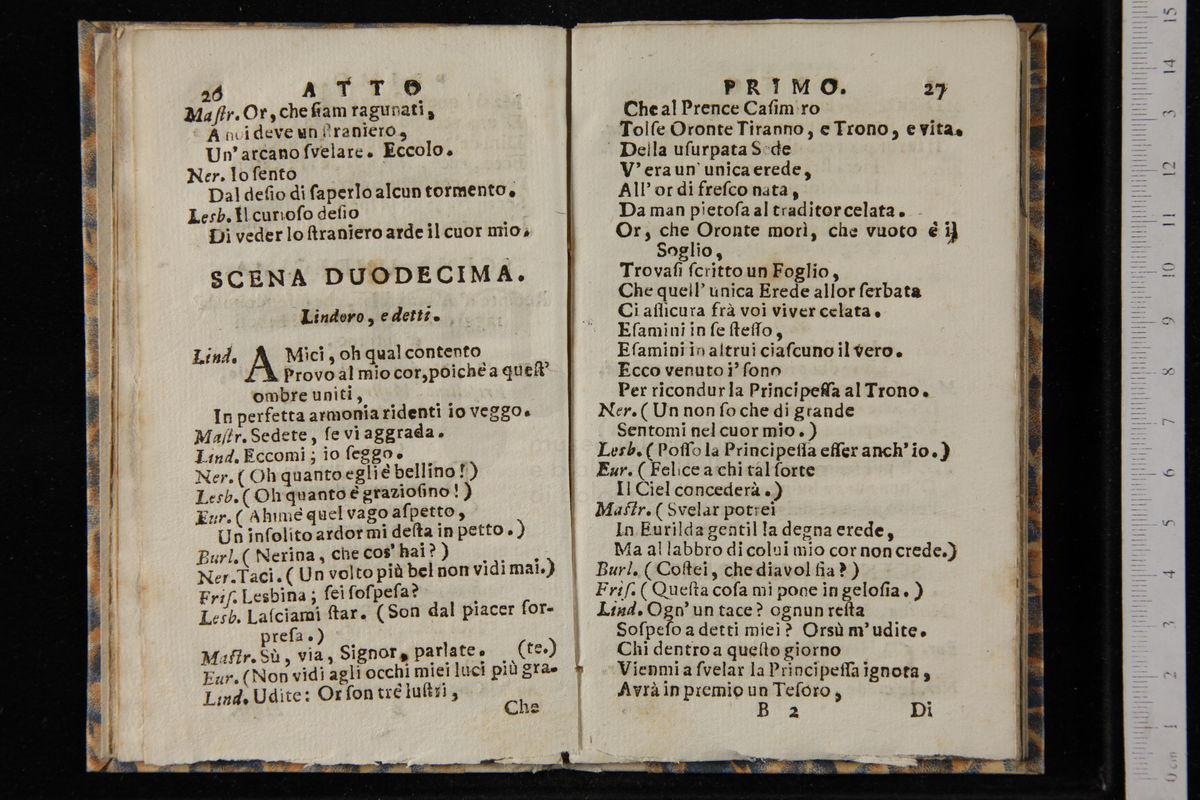 26 ATTO
Maſtr. Or, che ſiam ragunati,
A noi deve un ſtraniero,
Un' arcano ſvelare. Eccolo.
Ner. Io ſento
Dal deſio di ſaperlo alcun tormento.
Lesb. Il curioſo deſio
Di veder lo ſtraniero arde il cuor mio.
SCENA DUODECIMA.
Lindoro, e detti.
Lind. AMici, oh qual contento
Provo al mio cor, poichè a queſt'
ombre uniti,
In perfetta armonia ridenti io veggo.
Maſtr. Sedete, ſe vi aggrada.
Lind. Eccomi; io ſeggo.
Ner. (Oh quanto egli è bellino!)
Lesb. (Oh quanto è grazioſino!)
Eur. (Ahimè quel vago aſpetto,
Un inſolito ardor mi deſta in petto.)
Burl. (Nerina, che cos' hai?)
Ner. Taci. (Un volto più bel non vidi mai.)
Friſ. Lesbina; ſei ſoſpeſa?
Lesb. Laſciami ſtar. (Son dal piacer ſor-
preſa.)
Maſtr. Sù, via, Signor, parlate. (te.)
Eur. (Non vidi agli occhi miei luci più gra-
Lind. Udite: Or ſon trè luſtri,
Che
PRIMO. 27
Che al Prence Caſimiro
Tolſe Oronte Tiranno, e Trono, e vita.
Della uſurpata Sede
V' era un' unica erede,
All' or di freſco nata,
Da man pietoſa al traditor celata.
Or, che Oronte morì, che vuoto è il
Soglio,
Trovaſi ſcritto un Foglio,
Che quell' unica Erede allor ſerbata
Ci aſſicura frà voi viver celata.
Eſamini in ſe ſteſſo,
Eſamini in altrui ciaſcuno il vero.
Ecco venuto i' ſono
Per ricondur la Principeſſa al Trono.
Ner. (Un non ſo che di grande
Sentomi nel cuor mio.)
Lesb. (Poſſo la Principeſſa eſſer anch' io.)
Eur. (Felice a chi tal ſorte
Il Ciel concederà.)
Maſtr. (Svelar potrei
In Eurilda gentil la degna erede,
Ma al labbro di colui mio cor non crede.)
Burl. (Coſtei, che diavol ſia?)
Friſ. (Queſta coſa mi pone in geloſia.)
Lind. Ogn' un tace? ognun reſta
Soſpeſo a detti miei? Orsù m' udite.
Chi dentro a queſto giorno
Vienmi a ſvelar la Principeſſa ignota,
Avrà in premio un Teſoro,
B 2 Di
0 cm 1 2 3 4 5 6 7 8 9 10 11 12 13 14 15